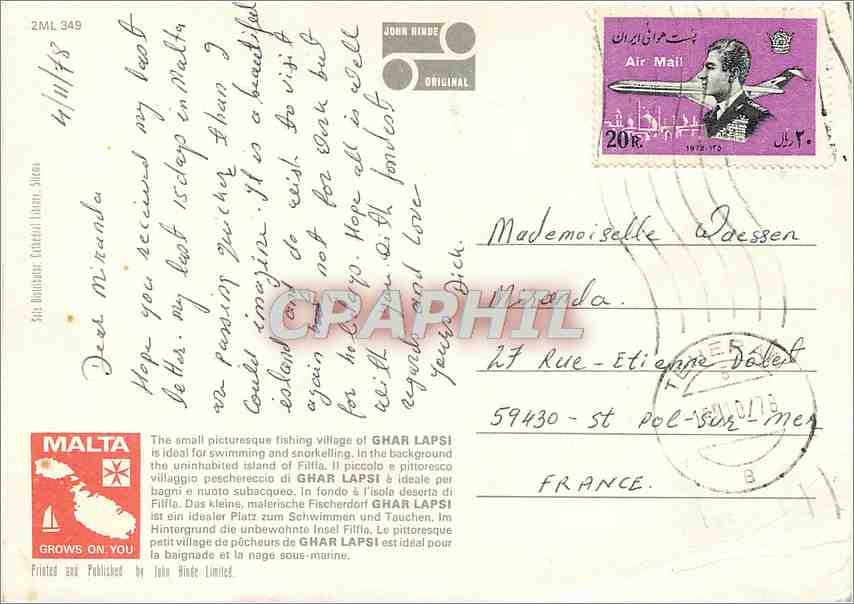 2ML 349
4/11/78
Dear Miranda
Hope you received my last
letter. My last 15 days in Malta
are passing quicker than I
could imagine. It is a beautiful
island and do wish to visit
again not for work but
for holidays. Hope all is well
with you with fondest
regards and love
Yours Dick.
JOHN HINDE
ORIGINAL
پست هوائی ایران
Air Mail
20 R.
۲۰ ریال
Mademoiselle Waessen
Miranda.
27 Rue - Etienne Dolet
59430 - St Pol-sur-Mer
FRANCE.
TEHERAN
B
CPAPHIL
Sole Distributor Cathedral Library, Sliema
MALTA
GROWS ON YOU
The small picturesque fishing village of GHAR LAPSI
is ideal for swimming and snorkelling. In the background
the uninhabited island of Filfla. Il piccolo e pittoresco
villaggio peschereccio di GHAR LAPSI è ideale per
bagni e nuoto subacqueo. In fondo è l'isola deserta di
Filfla. Das kleine, malerische Fischerdorf GHAR LAPSI
ist ein idealer Platz zum Schwimmen und Tauchen. Im
Hintergrund die unbewohnte Insel Filfla. Le pittoresque
petit village de pêcheurs de GHAR LAPSI est idéal pour
la baignade et la nage sous-marine.
Printed and Published by John Hinde Limited.